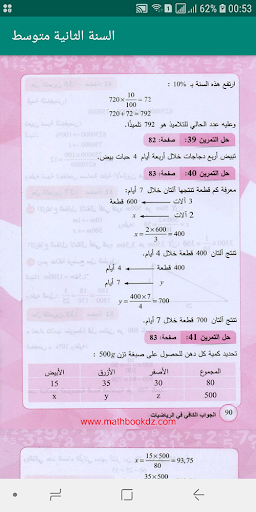 62% 00:53
السنة الثانية متوسط
ارتفع هذه السنة بـ 10% :
720 × 10/100 = 72
720 + 72 = 792
وعليه عدد الحالي للتلاميذ هو 792 تلميذًا.
حل التمرين 39: صفحة: 82
تبيض أربع دجاجات خلال أربعة أيام 4 حبات بيض.
حل التمرين 40: صفحة: 83
معرفة كم قطعة تنتجها آلتان خلال 7 أيام:
3 آلات → 600 قطعة
2 آلات → x
x = 2×600/3 = 400
تنتج آلتان 400 قطعة خلال 4 أيام.
400 قطعة → 4 أيام
y → 7 أيام
y = 400×7/4 = 700
تنتج آلتان 700 قطعة خلال 7 أيام.
حل التمرين 41: صفحة: 83
تحديد كمية كل دهن للحصول على صبغة تزن 500g:
المجموع الأصفر الأزرق الأبيض
80 30 35 15
500 z y x
www.mathbookdz.com
90 الجواب الكافي في الرياضيات
x = 15×500/80 = 93,75